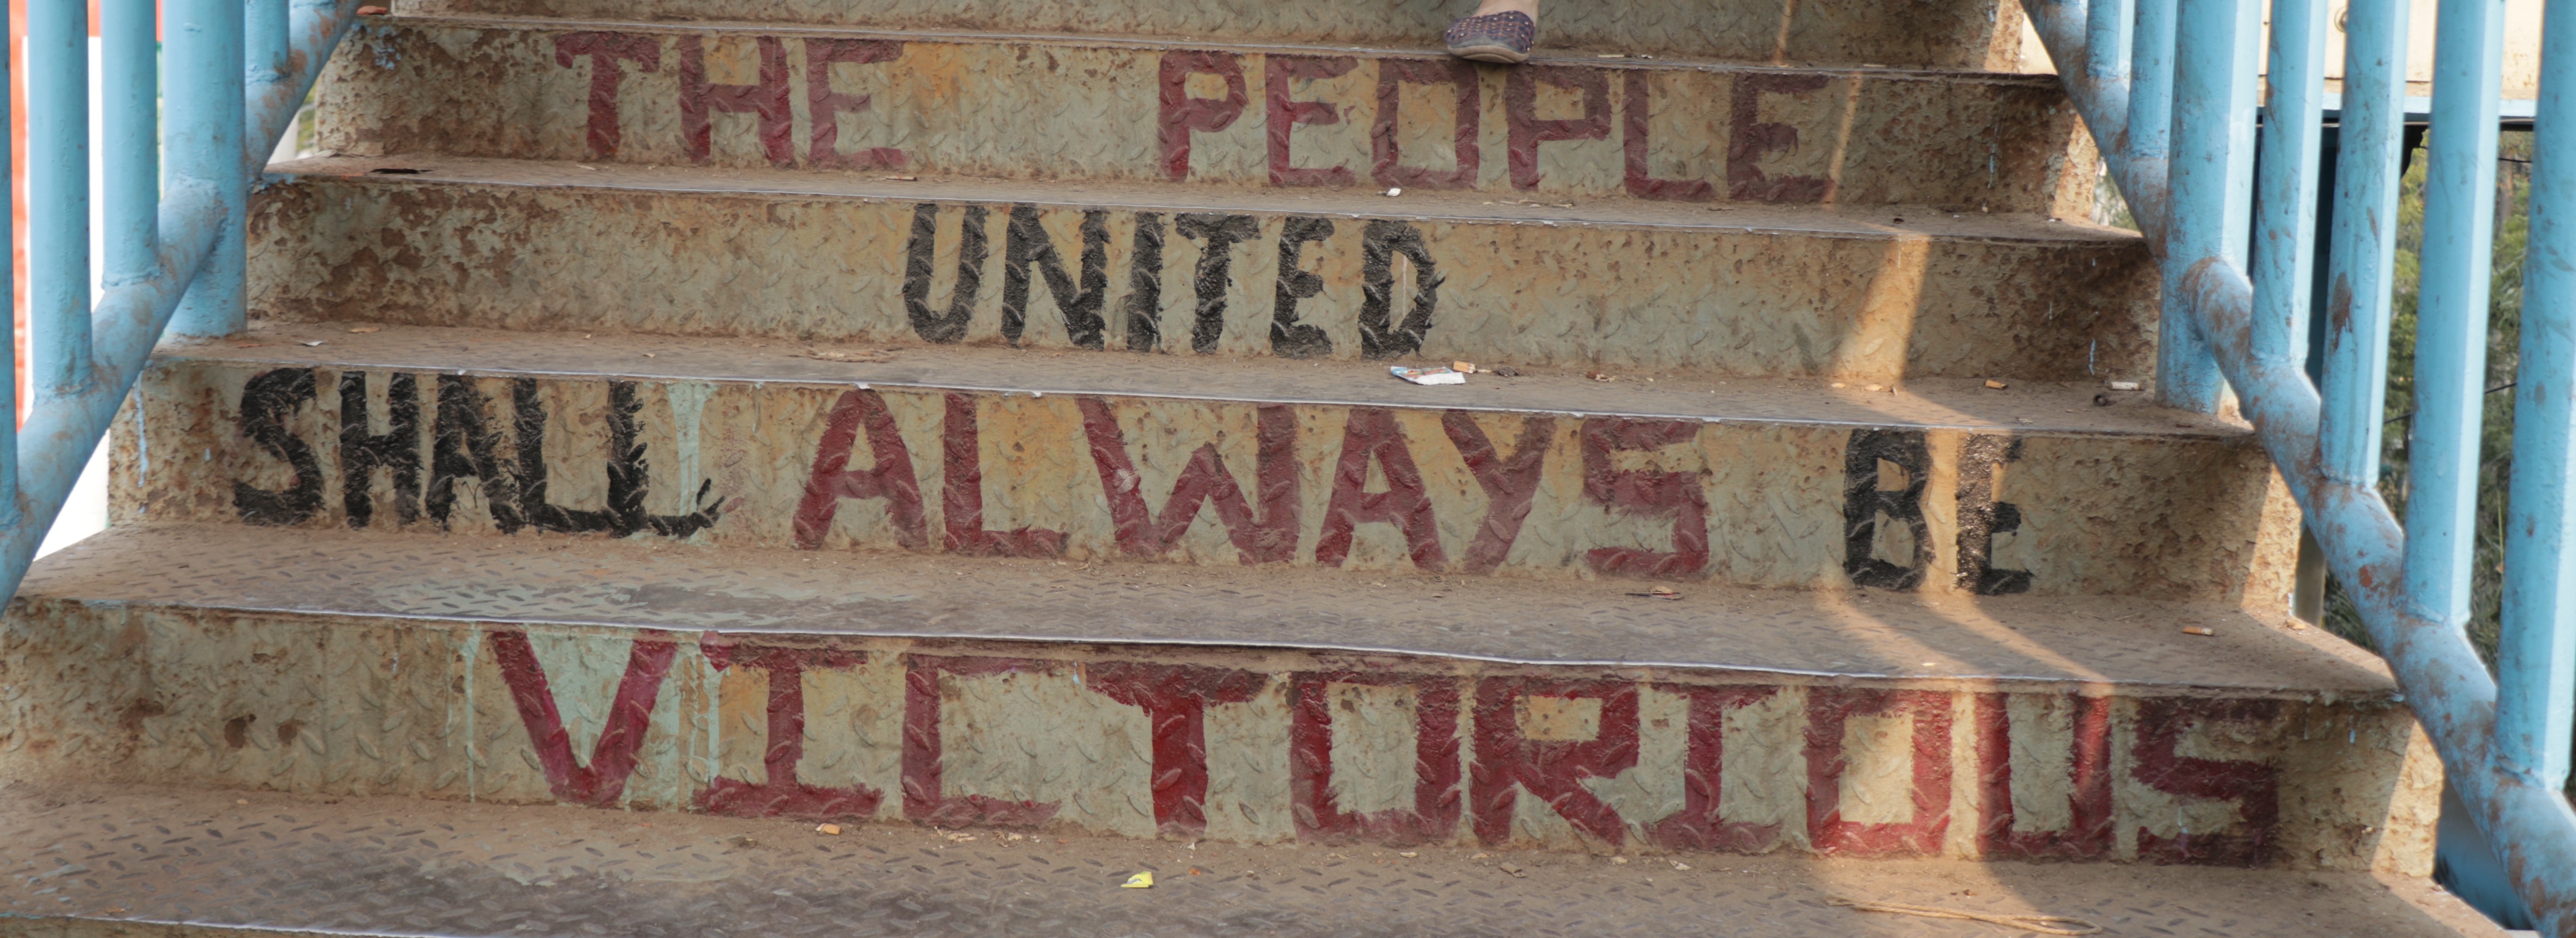 THE PEOPLE
UNITED
SHALL ALWAYS BE
VICTORIOUS